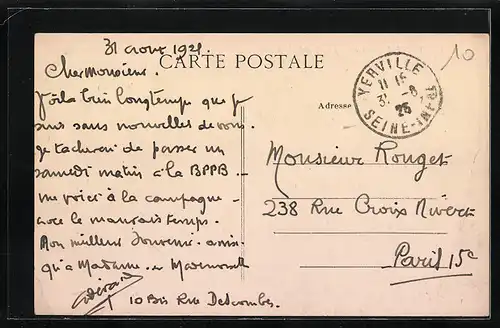 31 août 192
CARTE POSTALE
Cher Monsieur.
Voilà bien longtemps que je
suis sans nouvelles de vous.
Je tacherai de passer un
samedi matin à la BPPB
me voici à la campagne
avec le mauvais temps.
Mon meilleur souvenir ainsi
qu'à Madame et Mademoiselle
10 Bis Rue Descombes
Adresse
YERVILLE
11 15
31 -8
25
SEINE-INFRE
10
Monsieur Rouget
238 Rue Croix Nivert
Paris 15e